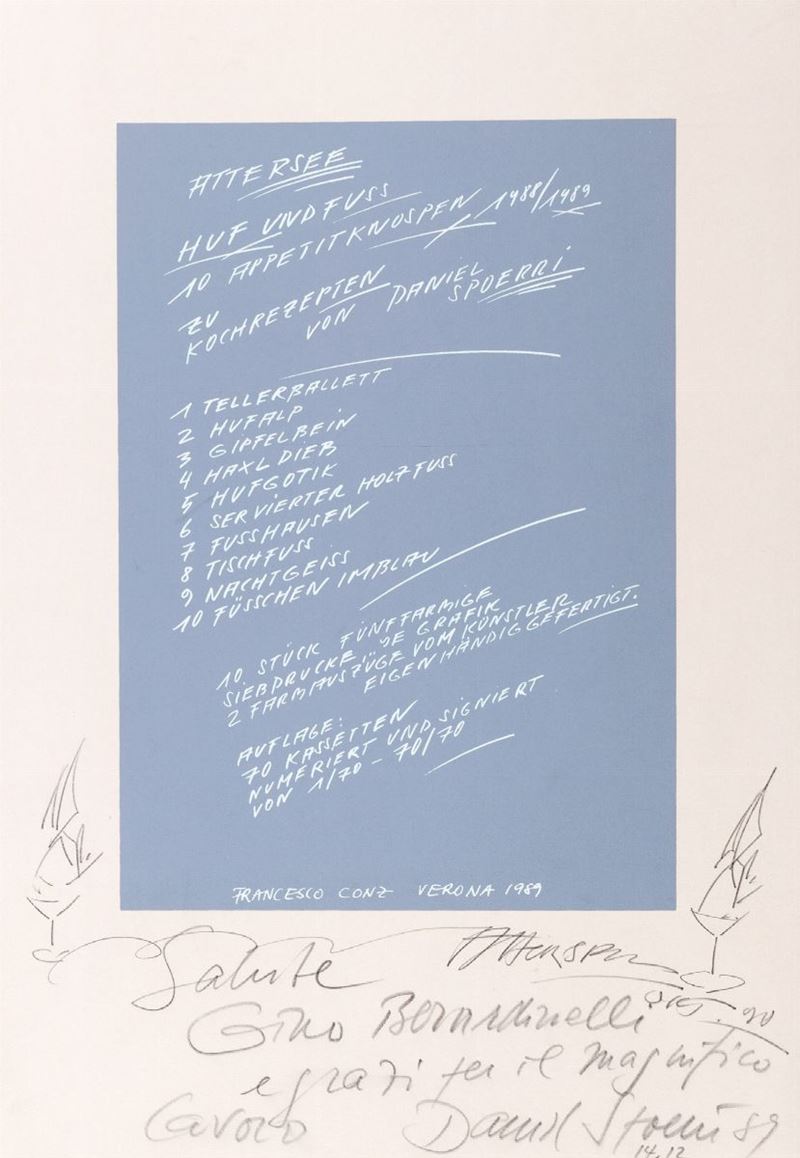 ATTERSEE
HUF UND FUSS
10 APPETITKNOSPEN 1988/1989
ZU
KOCHREZEPTEN
VON DANIEL
SPOERRI
1 TELLERBALLETT
2 HUFALP
3 GIPFELBEIN
4 HAXLDIEB
5 HUFGOTIK
6 SERVIERTER HOLZFUSS
7 FUSSHAUSEN
8 TISCHFUSS
9 NACHTGEISS
10 FÜSSCHEN IMBLAU
10 STÜCK FÜNFFARBIGE
SIEBDRUCKE, JE GRAFIK
2 FARBAUSZÜGE VOM KÜNSTLER
EIGENHÄNDIG GEFERTIGT.
AUFLAGE:
70 KASSETTEN
NUMERIERT UND SIGNIERT
VON 1/70 - 70/70
FRANCESCO CONZ VERONA 1989
Salute Attersee
90
Gino Berardinelli
e grazi per il magnifico
lavoro Daniel Spoerri 89
14.12